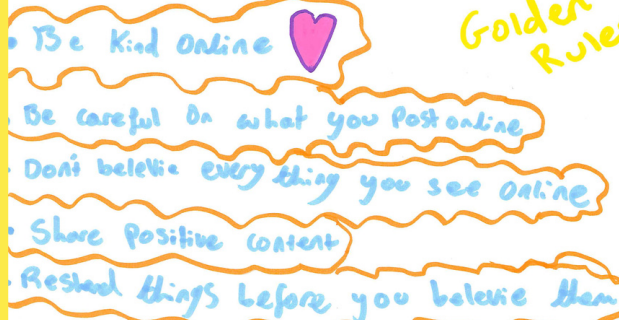 Golden
Rule
Be Kind Online
Be careful On what you Post online
Don't belevie every thing you see online
Share Positive content
things before you belevie them